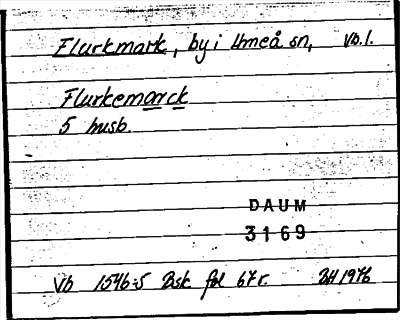 Flurkmark, by i Umeå sn, Vb.l.
Flurkemarck
5 husb.
DAUM
3169
Vb 1546:5 Bsk fol 67r. BH 1976